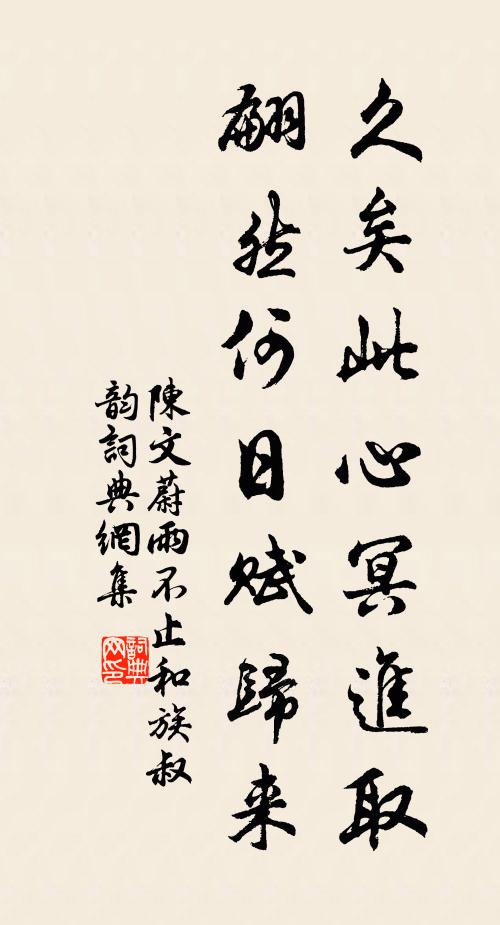 久矣此心冥進取
翩然何日賦歸来
陳文蔚雨不止和族叔
韵詞典網集
詞典網印